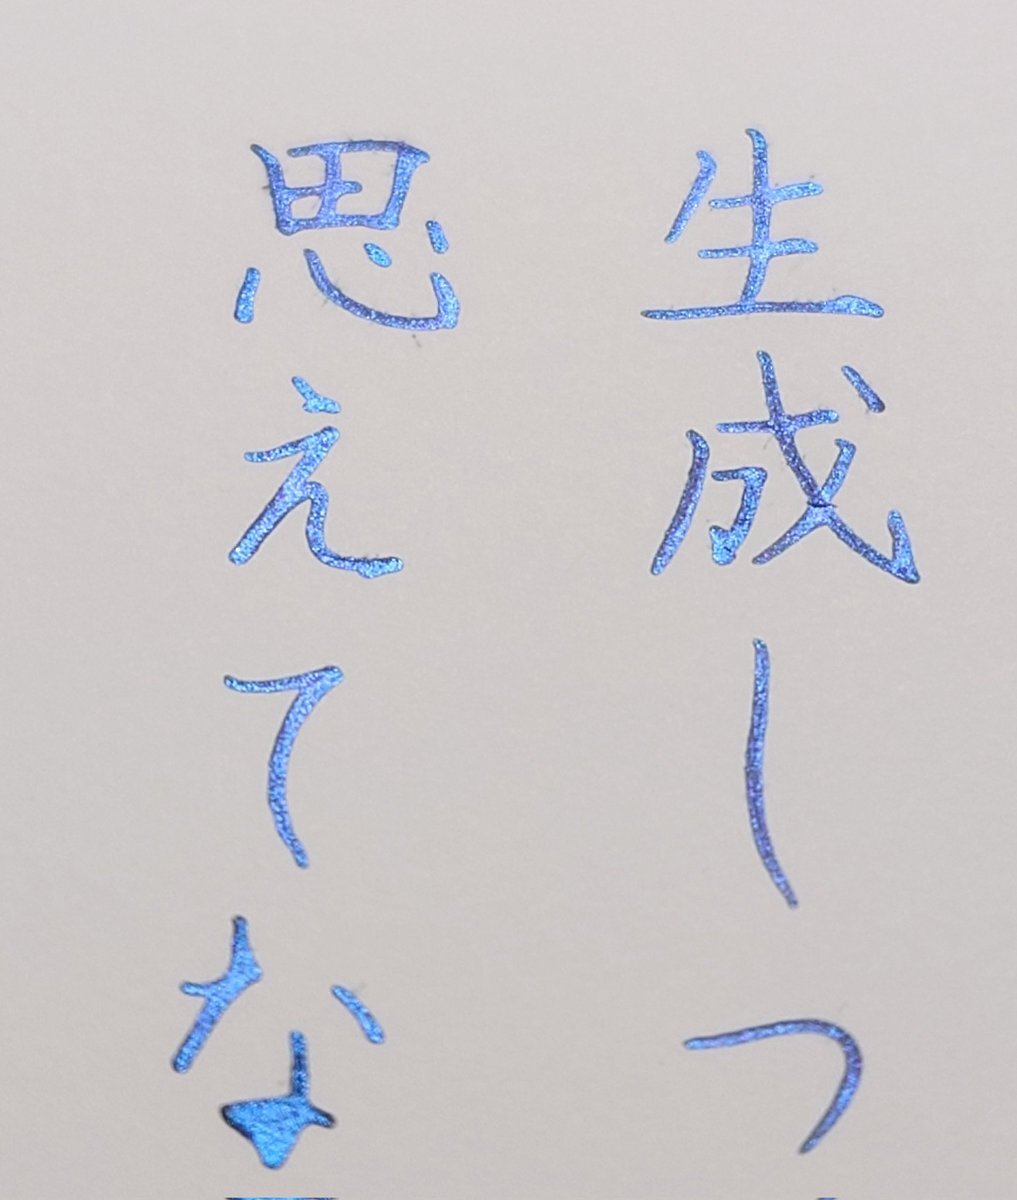 生成しつ
思えてな